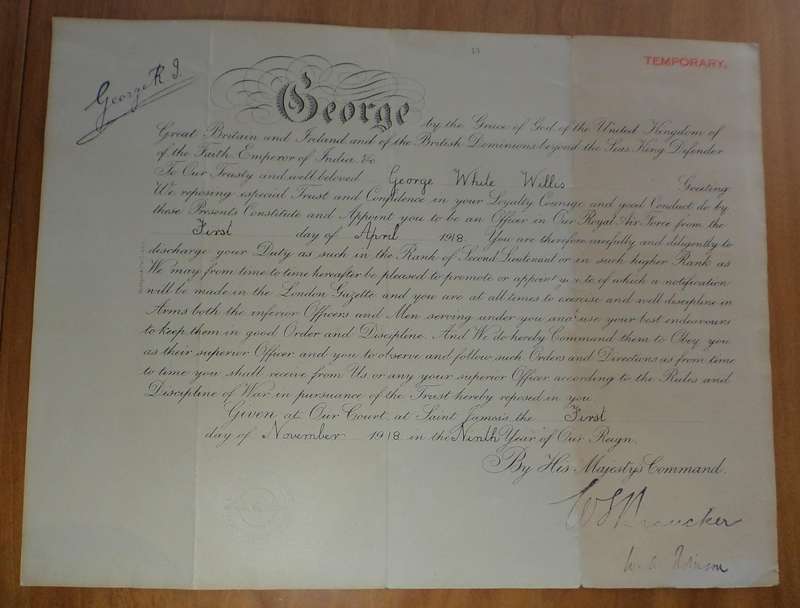 George R I
13
TEMPORARY.
George by the Grace of God, of the United Kingdom of
Great Britain and Ireland and of the British Dominions beyond the Seas, King, Defender
of the Faith, Emperor of India, &c
To Our Trusty and well beloved George White Willis Greeting
We reposing especial Trust and Confidence in your Loyalty Courage and good Conduct do by
these Presents Constitute and Appoint you to be an Officer in Our Royal Air Force from the
First day of April 1918. You are therefore carefully and diligently to
discharge your Duty as such in the Rank of Second Lieutenant or in such higher Rank as
We may from time to time hereafter be pleased to promote or appoint you to of which a notification
will be made in the London Gazette and you are at all times to exercise and well discipline in
Arms both the inferior Officers and Men serving under you and use your best endeavours
to keep them in good Order and Discipline. And We do hereby Command them to Obey you
as their superior Officer and you to observe and follow such Orders and Directions as from time
to time you shall receive from Us or any your superior Officer according to the Rules and
Discipline of War in pursuance of the Trust hereby reposed in you.
Given at Our Court, at Saint James's, the First
day of November 1918 in the Ninth Year of Our Reign.
By His Majesty's Command.